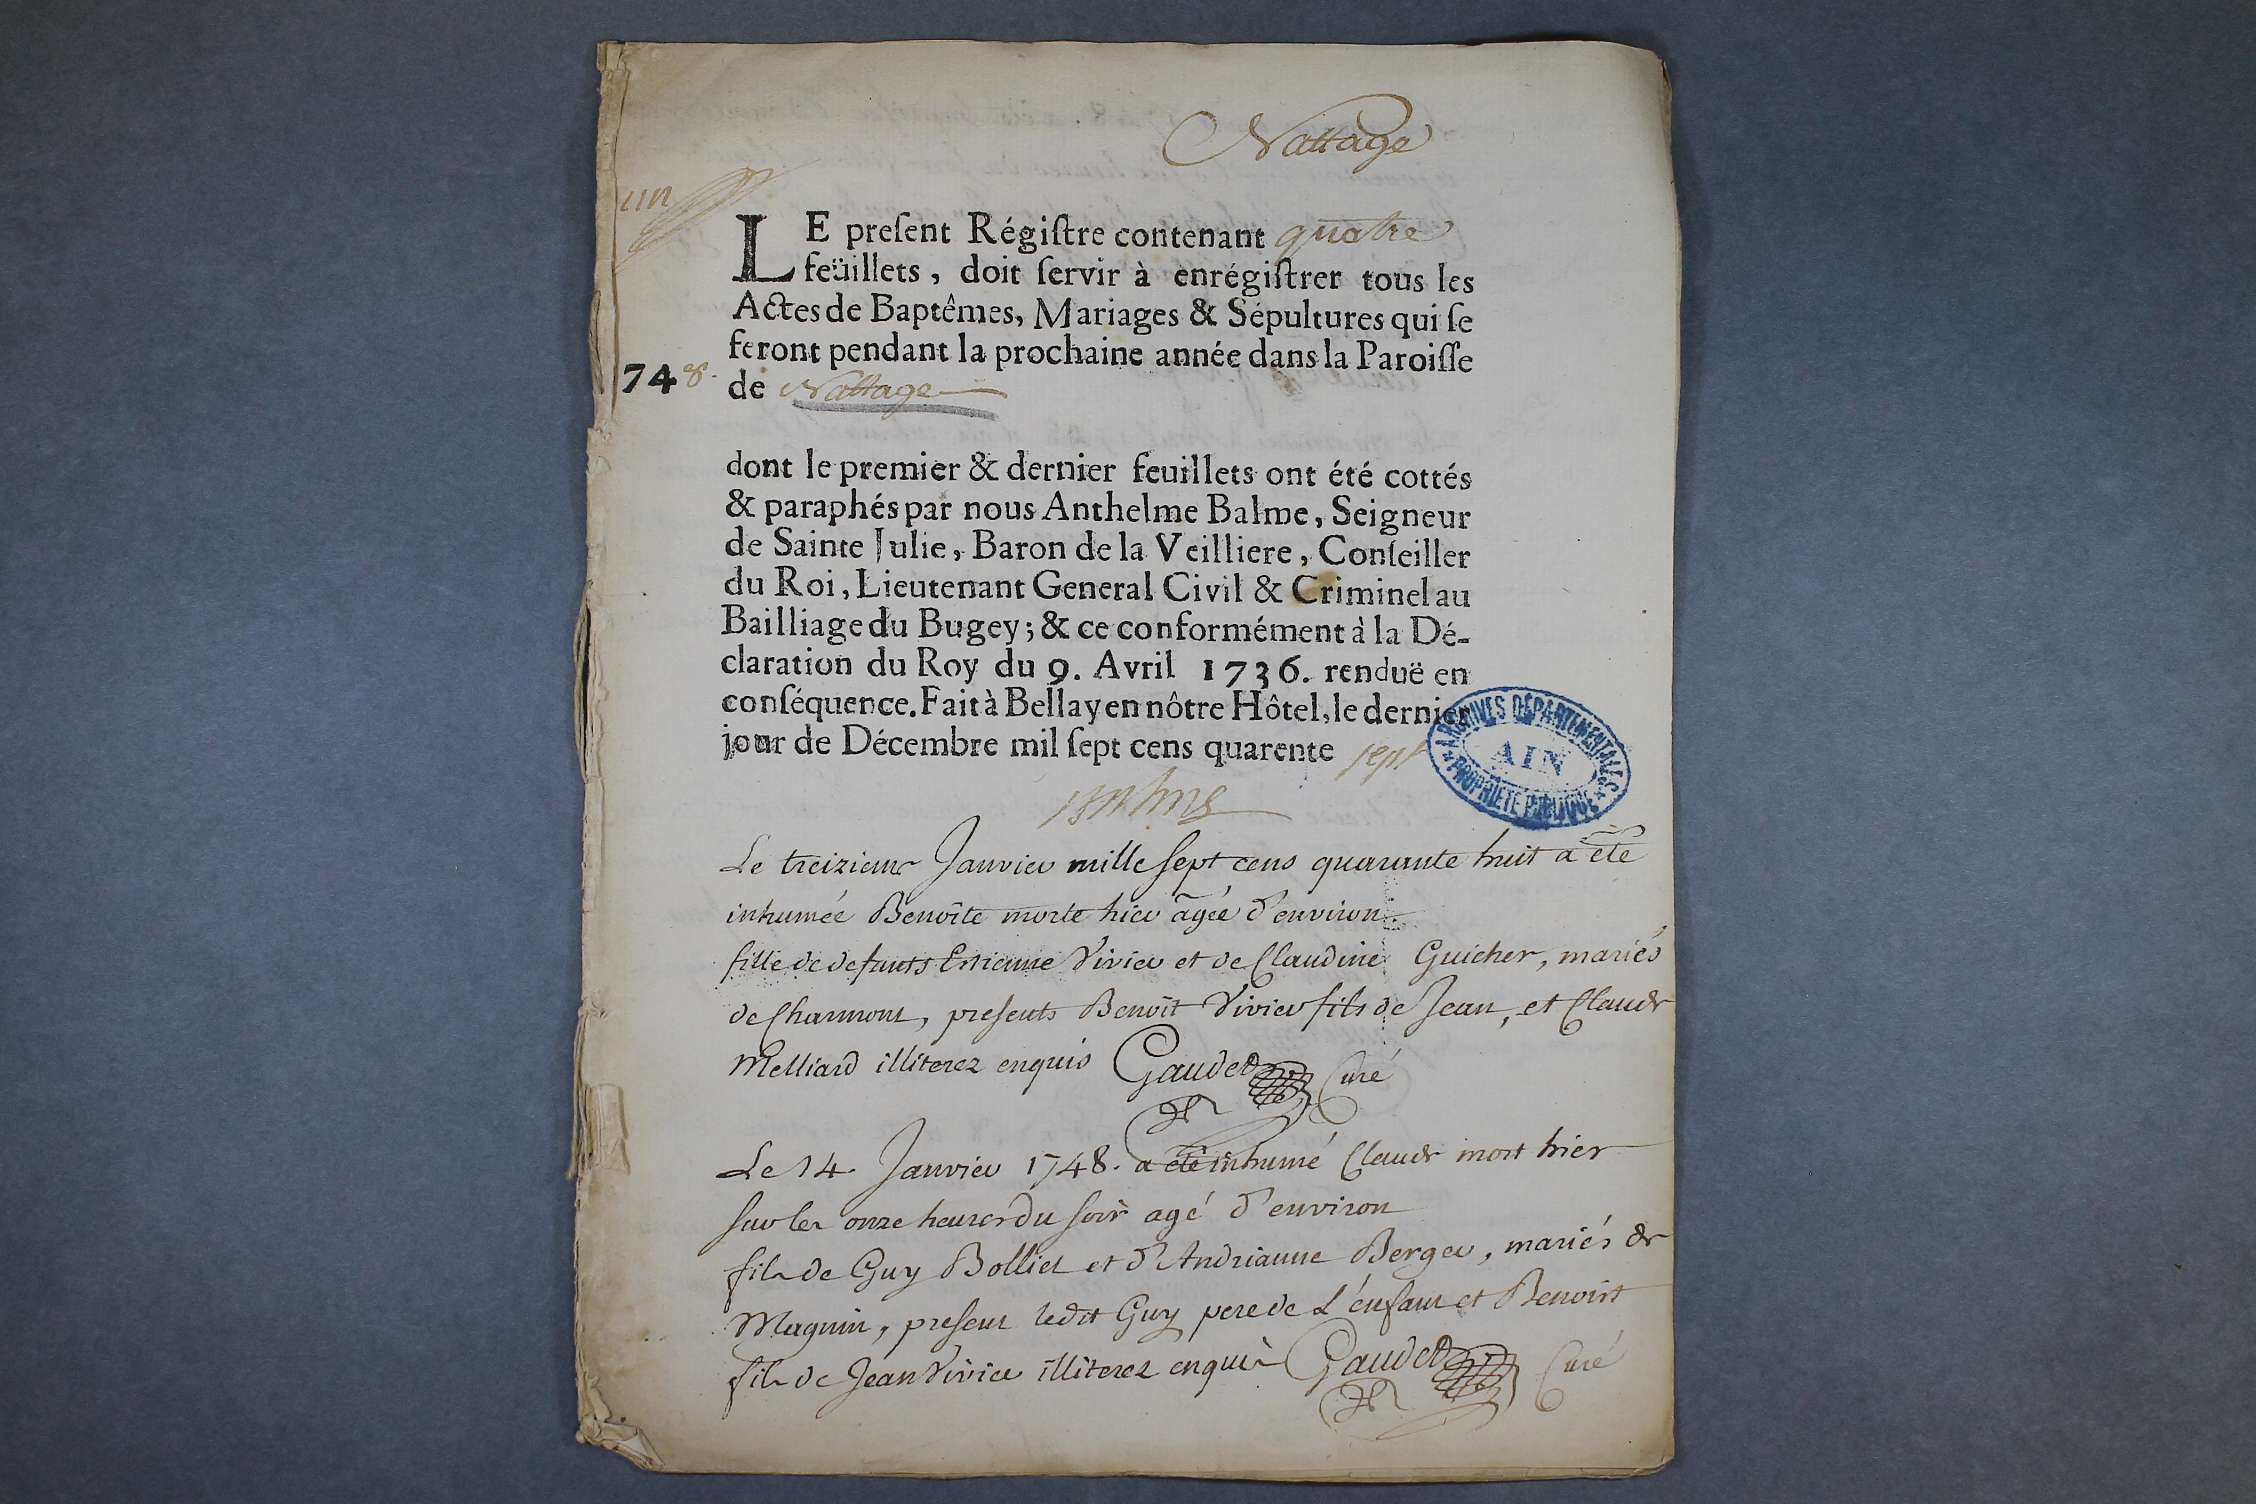 Nattage
un
LE preſent Régiſtre contenant quatre
feüillets, doit ſervir à enrégiſtrer tous les
Actes de Baptêmes, Mariages & Sépultures qui ſe
feront pendant la prochaine année dans la Paroiſſe
748.
de Nattage
dont le premier & dernier feuillets ont été cottés
& paraphés par nous Anthelme Balme, Seigneur
de Sainte Julie, Baron de la Veilliere, Conſeiller
du Roi, Lieutenant General Civil & Criminel au
Bailliage du Bugey; & ce conformément à la Dé-
claration du Roy du 9. Avril 1736. renduë en
conſéquence. Fait à Bellay en nôtre Hôtel, le dernier
jour de Décembre mil ſept cens quarente sept
ARCHIVES DÉPARTEMENTALES
AIN
PROPRIÉTÉ PUBLIQUE
Balme
Le treizieme Janvier mille sept cens quarante huit a été
inhumée Benoîte morte hier âgée d'environ
fille de defunts Estienne Vivier et de Claudine Guicher, mariés
de Charmont, presents Benoît Vivier fils de Jean, et Claude
Melliard illiterez enquis Gaudet Curé
Le 14 Janvier 1748. a été inhumé Claude mort hier
sur les onze heures du soir agé d'environ
fils de Guy Bolliet et d'Andrianne Berger, mariés de
Magnin, present ledit Guy pere de L'énfant et Benoist
fils de Jean Vivier illiterez enquis Gaudet Curé